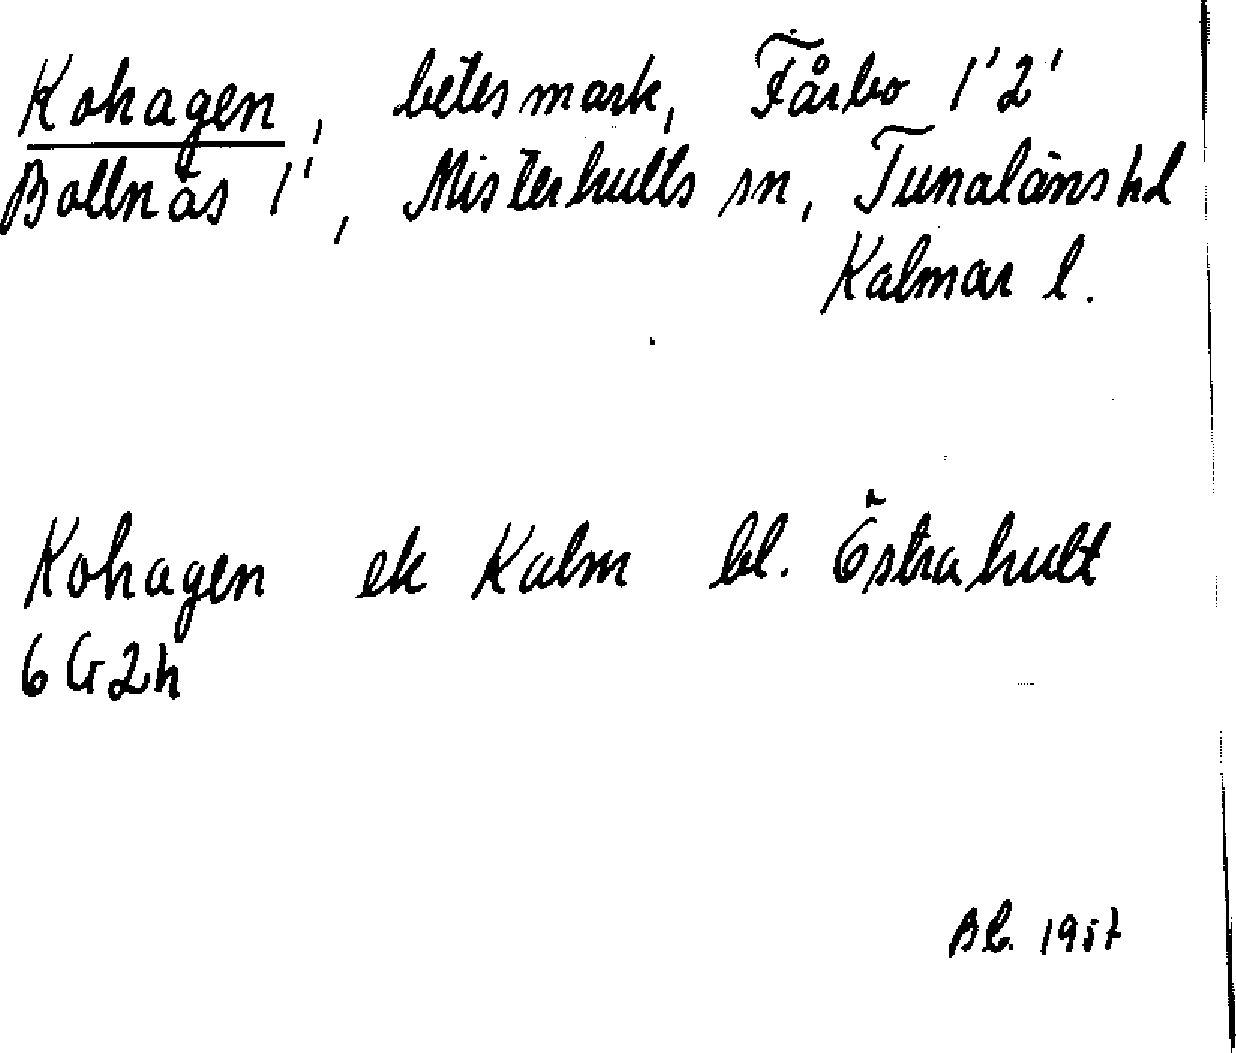 Kohagen, betesmark, Fårbo 1'2'
Bollnäs 1', Misterhults sn, Tunaläns hd
Kalmar l.
Kohagen ek Kalm bl. Östrahult
6G2h
BC. 1957